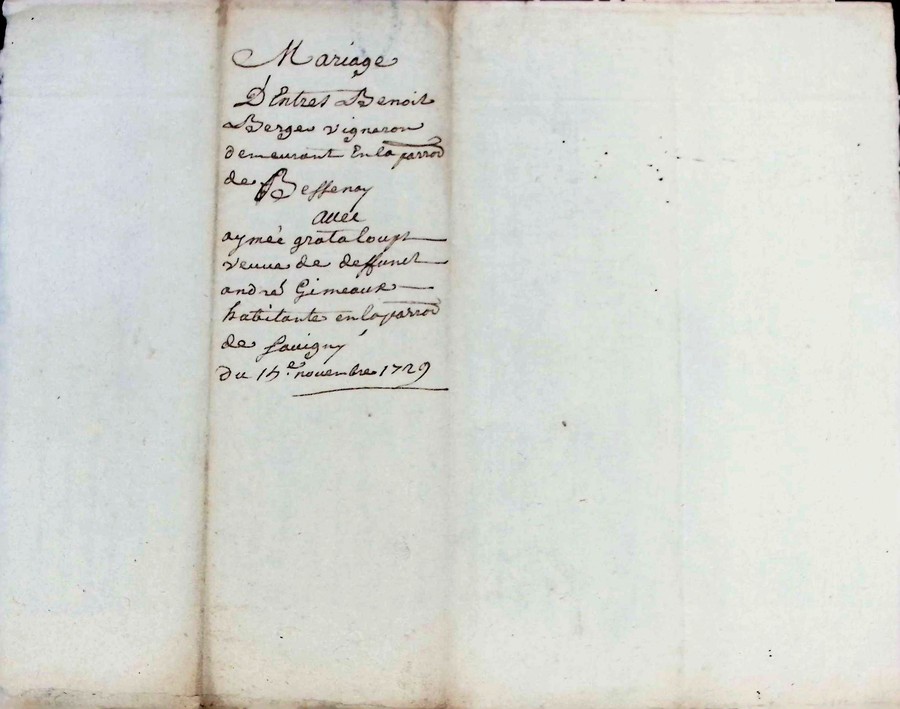 Mariage
D'Entres Benoit
Berger vigneron
demeurant En la parroē
de Bessenay
avec
aymée grataloupt
veuve de deffunct
andré Gimeaux
habitante en la parroē
de savigny
Du 14e. novembre 1729